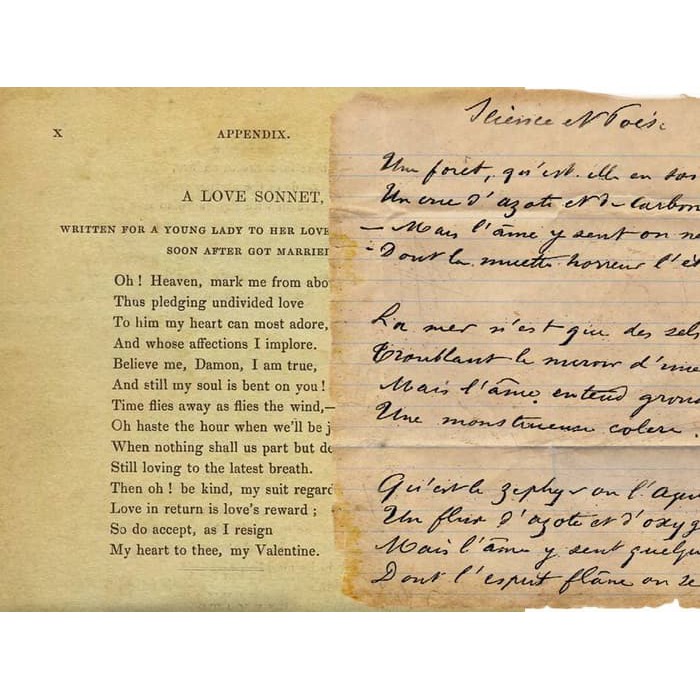 X
APPENDIX.
A LOVE SONNET,
WRITTEN FOR A YOUNG LADY TO HER LOVE
SOON AFTER GOT MARRIE
Oh! Heaven, mark me from abo
Thus pledging undivided love
To him my heart can most adore,
And whose affections I implore.
Believe me, Damon, I am true,
And still my soul is bent on you!
Time flies away as flies the wind,—
Oh haste the hour when we'll be j
When nothing shall us part but de
Still loving to the latest breath.
Then oh! be kind, my suit regard
Love in return is love's reward;
So do accept, as I resign
My heart to thee, my Valentine.
Science et Poés
Une foret, qu'est-elle en soi
d'azote et de carbon
— Mais l'âme y sent on ne
- Dont la muette horreur l'é
La mer n'est que des sels
Troublant le miroir d'une
Mais l'âme entend grond
Une monstrueuse colere.
Qu'est le zephyr ou l'aqui
Un flux d'azote et d'oxyg
Mais l'âme y sent quelqu
Dont l'esprit flâne ou se